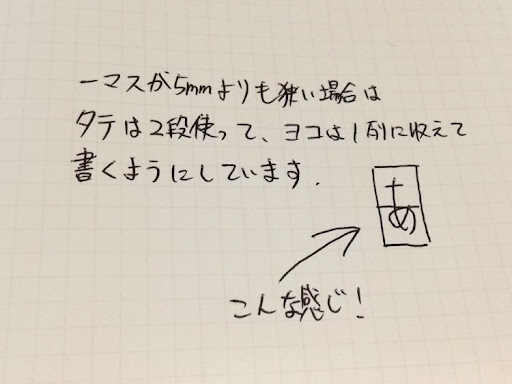 一マスが5mmよりも狭い場合は
タテは2段使って、ヨコは1列に収えて
書くようにしています.
あ
こんな感じ!